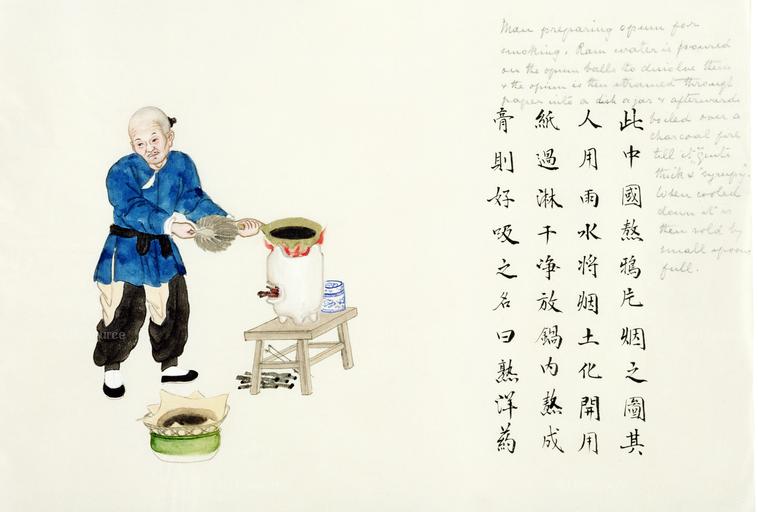 Man preparing opium for
smoking. Rain water is poured
on the opium balls to dissolve them
& the opium is then strained through
paper into a dish or jar & afterwards
boiled over a
charcoal fire
till it is quite
thick & "syrupy".
When cooled
down it is
then sold by
small spoon
full.
此中國熬鴉片烟之圖其
人用雨水將烟土化開用
紙過淋干净放鍋內熬成
膏則好吸之名曰熟洋葯